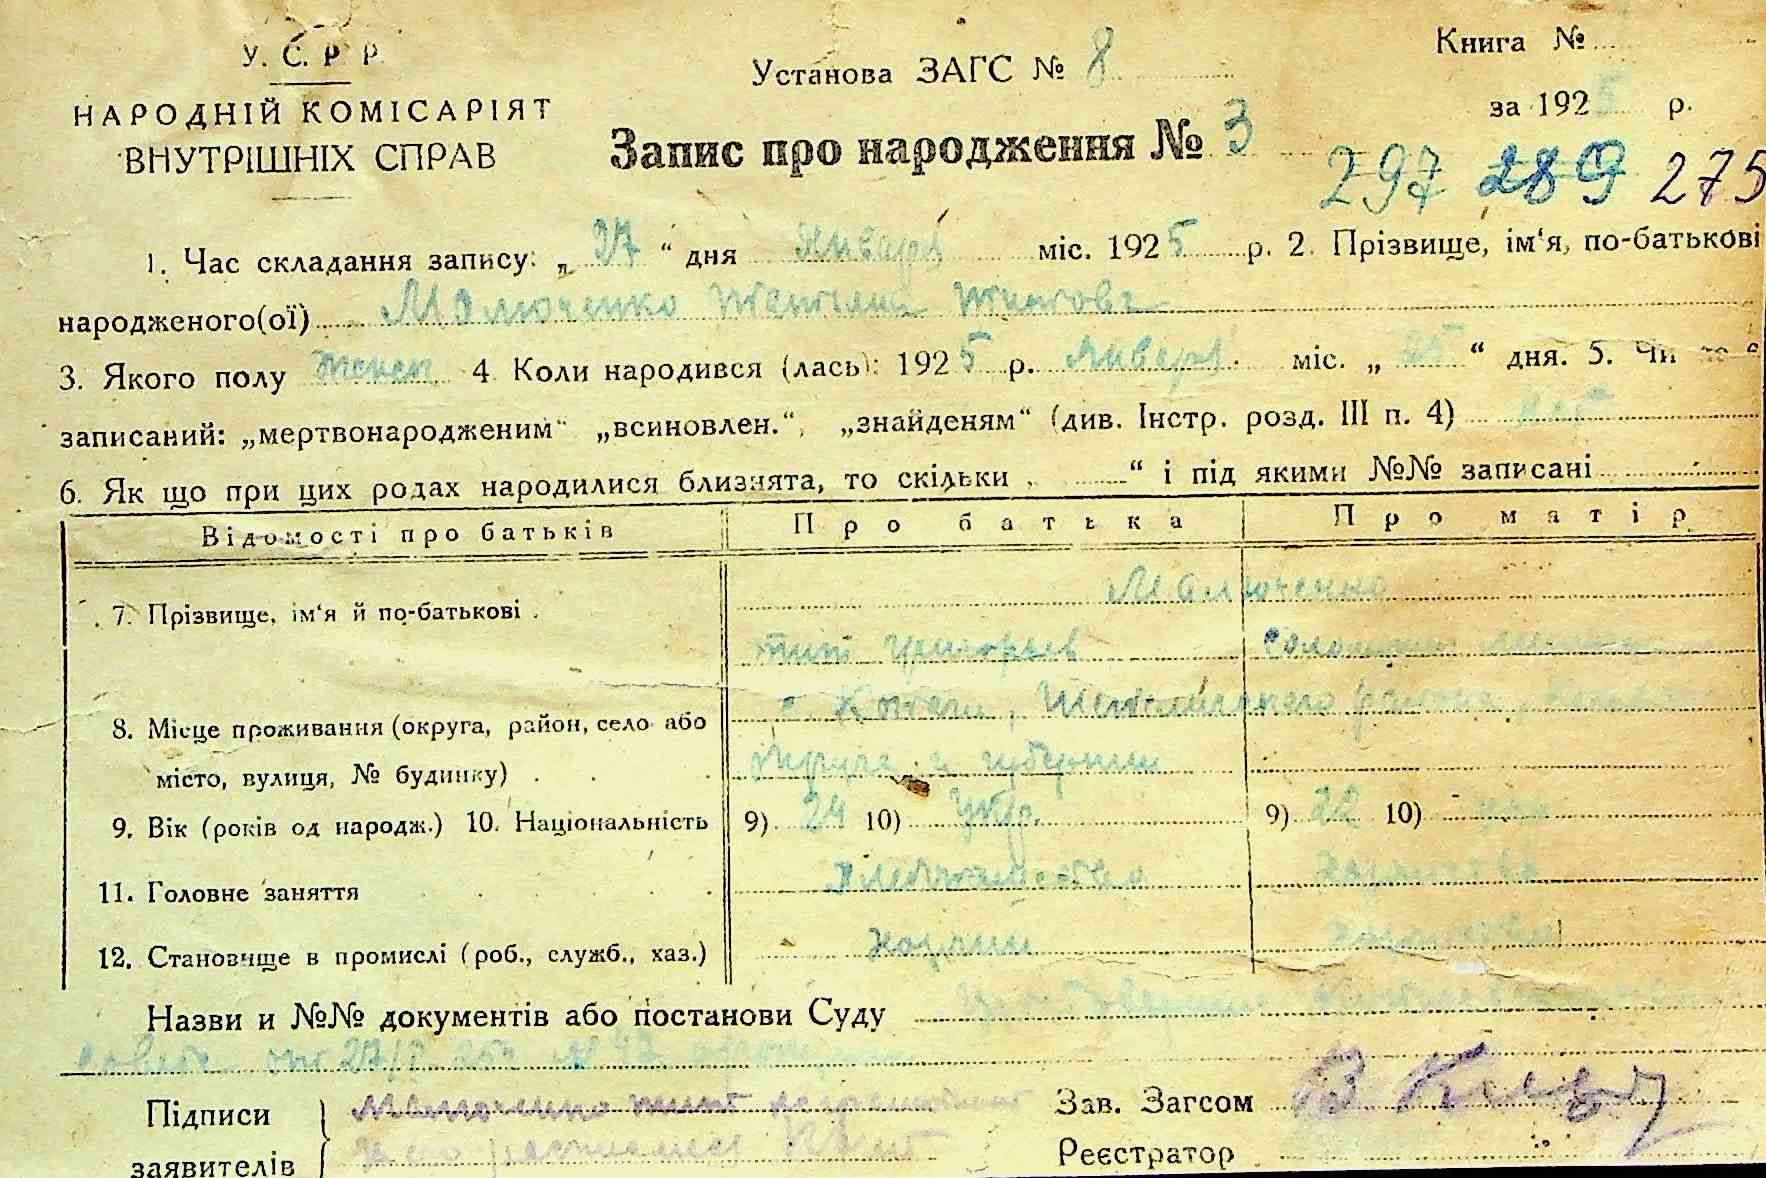 У. С. Р. Р.
НАРОДНІЙ КОМІСАРІЯТ
ВНУТРІШНІХ СПРАВ
Установа ЗАГС № 8
Запис про народження № 3
Книга №
за 1925 р.
297 289 275
1. Час складання запису: „ 27 “ дня Января міс. 1925 р. 2. Прізвище, ім‘я, по-батькові
народженого(ої) Малюченко Татьяна Титовъ
3. Якого полу женск 4. Коли народився (лась): 1925 р. Января міс. „ 25 “ дня. 5. Чи
записаний: „мертвонародженим“ „всиновлен.“, „знайденям“ (див. Інстр. розд. III п. 4) нет
6. Як що при цих родах народилися близнята, то скільки „ “ і під якими №№ записані
Відомості про батьків Про батька Про матір
7. Прізвище, ім‘я й по-батькові Малюченко
Тит Григорьев
8. Місце проживання (округа, район, село або с.
місто, вулиця, № будинку) округа и губернии
9. Вік (років од народж.) 10. Національність 9) 24 10) Укр. 9) 22 10) укр
11. Головне заняття Хлебопашество
12. Становище в промислі (роб., служб., хаз.) хозяин
Назви и №№ документів або постанови Суду
Совета от 27/I 25г №
Підписи Малюченко Тит Зав. Загсом
заявителів Реєстратор